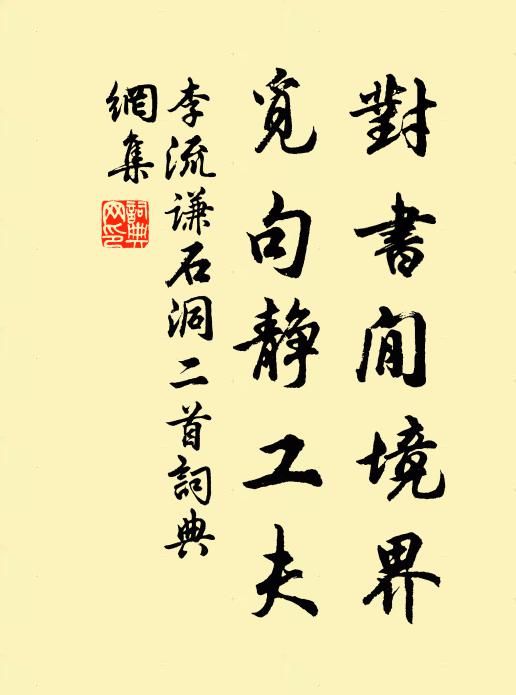 對書閒境界
覓句静工夫
李流谦石洞二首詞典
網集
詞典
网印